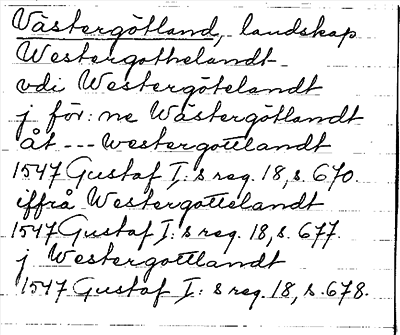 Västergötland, landskap
Westergothelandt
vdi Westergötelandt
j för: ne Wästergötlandt
Åt --- westergottlandt
1547 Gustaf I:s reg. 18, s. 670.
iffrå Westergottelandt
1547 Gustaf I:s reg. 18, s. 677.
j Westergottlandt
1547 Gustaf I:s reg. 18, s. 678.